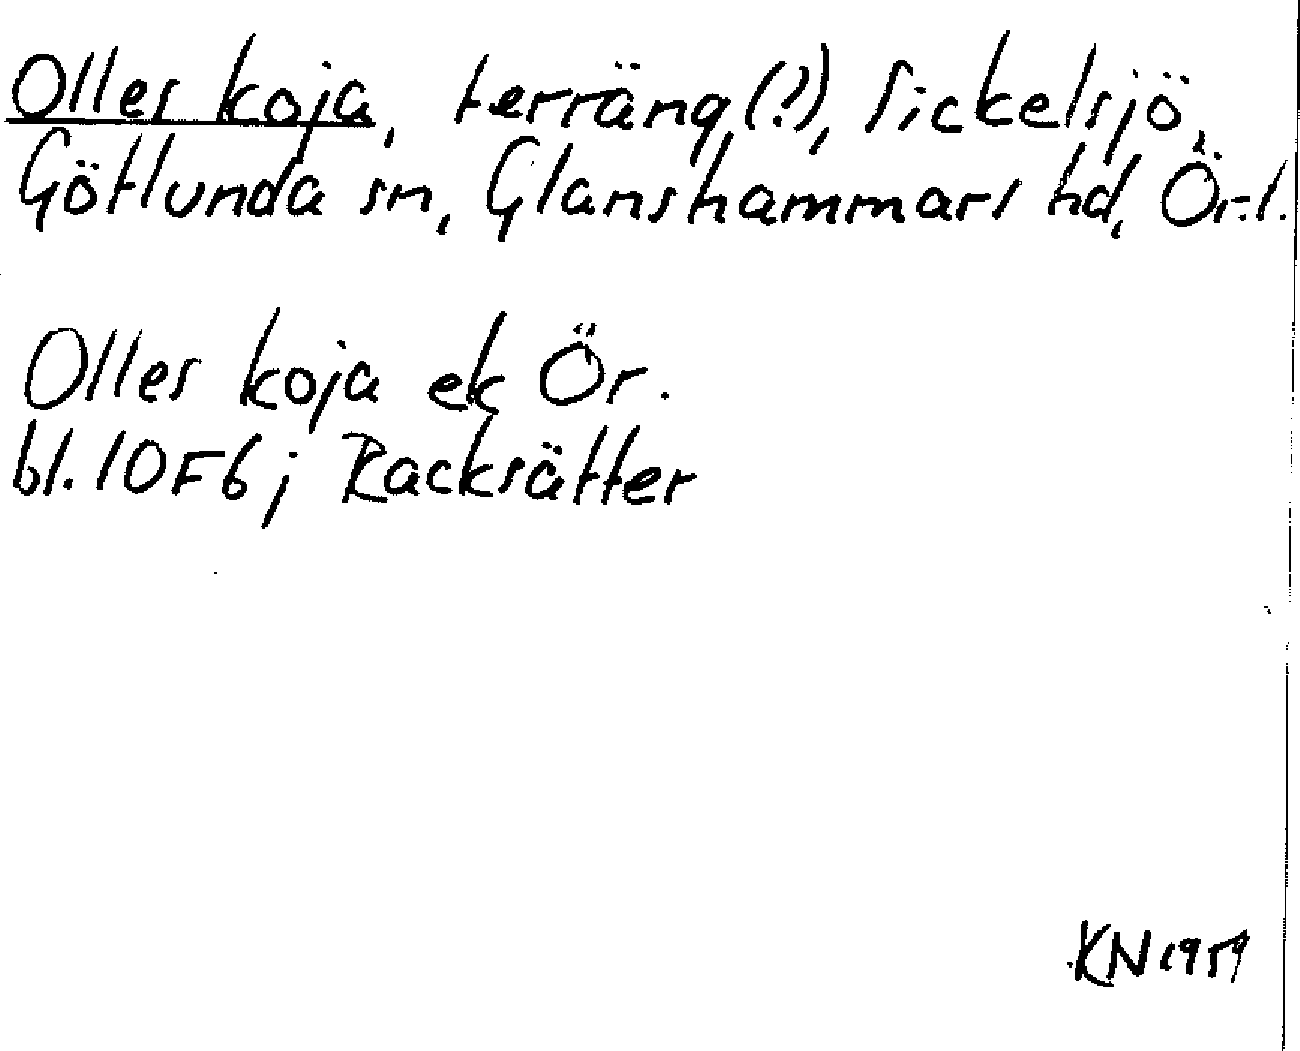 Olles koja, terräng(?), Sickelsjö,
Götlunda sn, Glanshammars hd, Ör.l.
Olles koja ek Ör.
bl. 10F6; Racksätter
KN 1959